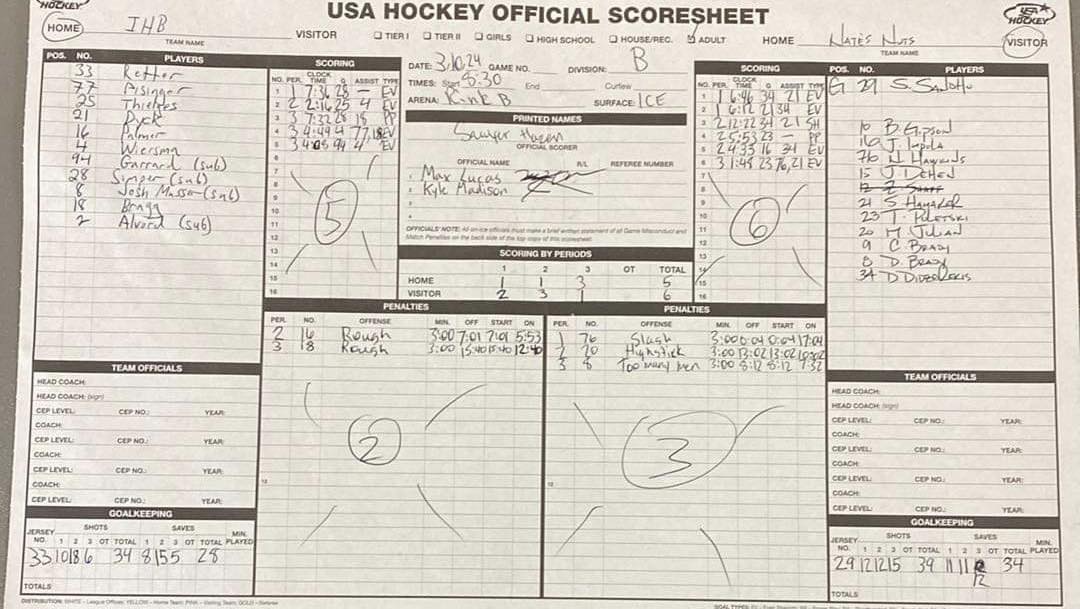 HOCKEY
USA HOCKEY OFFICIAL SCORESHEET
USA HOCKEY
HOME IHB VISITOR
TEAM NAME
☐ TIER I ☐ TIER II ☐ GIRLS ☐ HIGH SCHOOL ☐ HOUSE/REC. ☑ ADULT
HOME NATES NUTS VISITOR
TEAM NAME
POS. NO. PLAYERS
33 Retter
77 Aisinger
25 Thielges
21 Dyck
16 Palmer
4 Wiersma
94 Garrard (sub)
28 Simper (sub)
8 Josh Massar (sub)
18 Bragg
2 Alvord (sub)
SCORING
NO. PER. CLOCK TIME G ASSIST TYPE
1 1 7:36 28 — EV
2 2 2:16 25 4 EV
3 3 7:22 28 18 PP
4 3 4:49 4 77,18 EV
5 3 4:08 94 4 EV
6
7
8
9
10
11
12
13
14
15
16
5
DATE: 3.10.24 GAME NO. DIVISION: B
TIMES: Start 8:30 End Curfew
ARENA: Rink B SURFACE: ICE
PRINTED NAMES
Sawyer Hazen
OFFICIAL SCORER
OFFICIAL NAME R/L REFEREE NUMBER
1 Max Lucas
2 Kyle Madison
3
4
OFFICIALS' NOTE: All on-ice officials must make a brief written statement of all Game Misconduct and
Match Penalties on the back side of the top copy of this scoresheet.
SCORING BY PERIODS
1 2 3 OT TOTAL
HOME 1 1 3 5
VISITOR 2 3 1 6
SCORING
NO. PER. CLOCK TIME G ASSIST TYPE
1 1 6:46 34 21 EV
2 1 6:12 21 34 EV
3 2 12:22 34 21 SH
4 2 5:53 23 — PP
5 2 4:33 16 34 EV
6 3 1:48 23 76,21 EV
7
8
9
10
11
12
13
14
15
16
6
POS. NO. PLAYERS
G 29 S. SANDHU
10 B. GIPSON
16 J.
76 N. HAWKINS
15 J.
12
21 S.
23 T.
20 M. JULIAN
9 C. BRADY
8 D. BRADY
34 D
PENALTIES
PER. NO. OFFENSE MIN. OFF START ON
2 16 Rough 3:00 7:01 7:01 5:53
3 18 Rough 3:00 15:40 15:40 12:40
2
PENALTIES
PER. NO. OFFENSE MIN. OFF START ON
1 76 Slash 3:00 0:04 0:04 17:04
2 20 Highstick 3:00 13:02 13:02 10:02
3 8 Too many men 3:00 8:12 8:12 7:32
3
12
12
TEAM OFFICIALS
HEAD COACH:
HEAD COACH: (sign)
CEP LEVEL: CEP NO.: YEAR:
COACH:
CEP LEVEL: CEP NO.: YEAR:
COACH:
CEP LEVEL: CEP NO.: YEAR:
COACH:
CEP LEVEL: CEP NO.: YEAR:
TEAM OFFICIALS
HEAD COACH:
HEAD COACH: (sign)
CEP LEVEL: CEP NO.: YEAR:
COACH:
CEP LEVEL: CEP NO.: YEAR:
COACH:
CEP LEVEL: CEP NO.: YEAR:
COACH:
CEP LEVEL: CEP NO.: YEAR:
GOALKEEPING
JERSEY NO. SHOTS 1 2 3 OT TOTAL SAVES 1 2 3 OT TOTAL MIN. PLAYED
33 10 18 6 34 8 15 5 28
TOTALS
GOALKEEPING
JERSEY NO. SHOTS 1 2 3 OT TOTAL SAVES 1 2 3 OT TOTAL MIN. PLAYED
29 12 12 15 39 11 11 12 34
TOTALS
DISTRIBUTION: WHITE – League Offices; YELLOW – Home Team; PINK – Visiting Team; GOLD – Referee